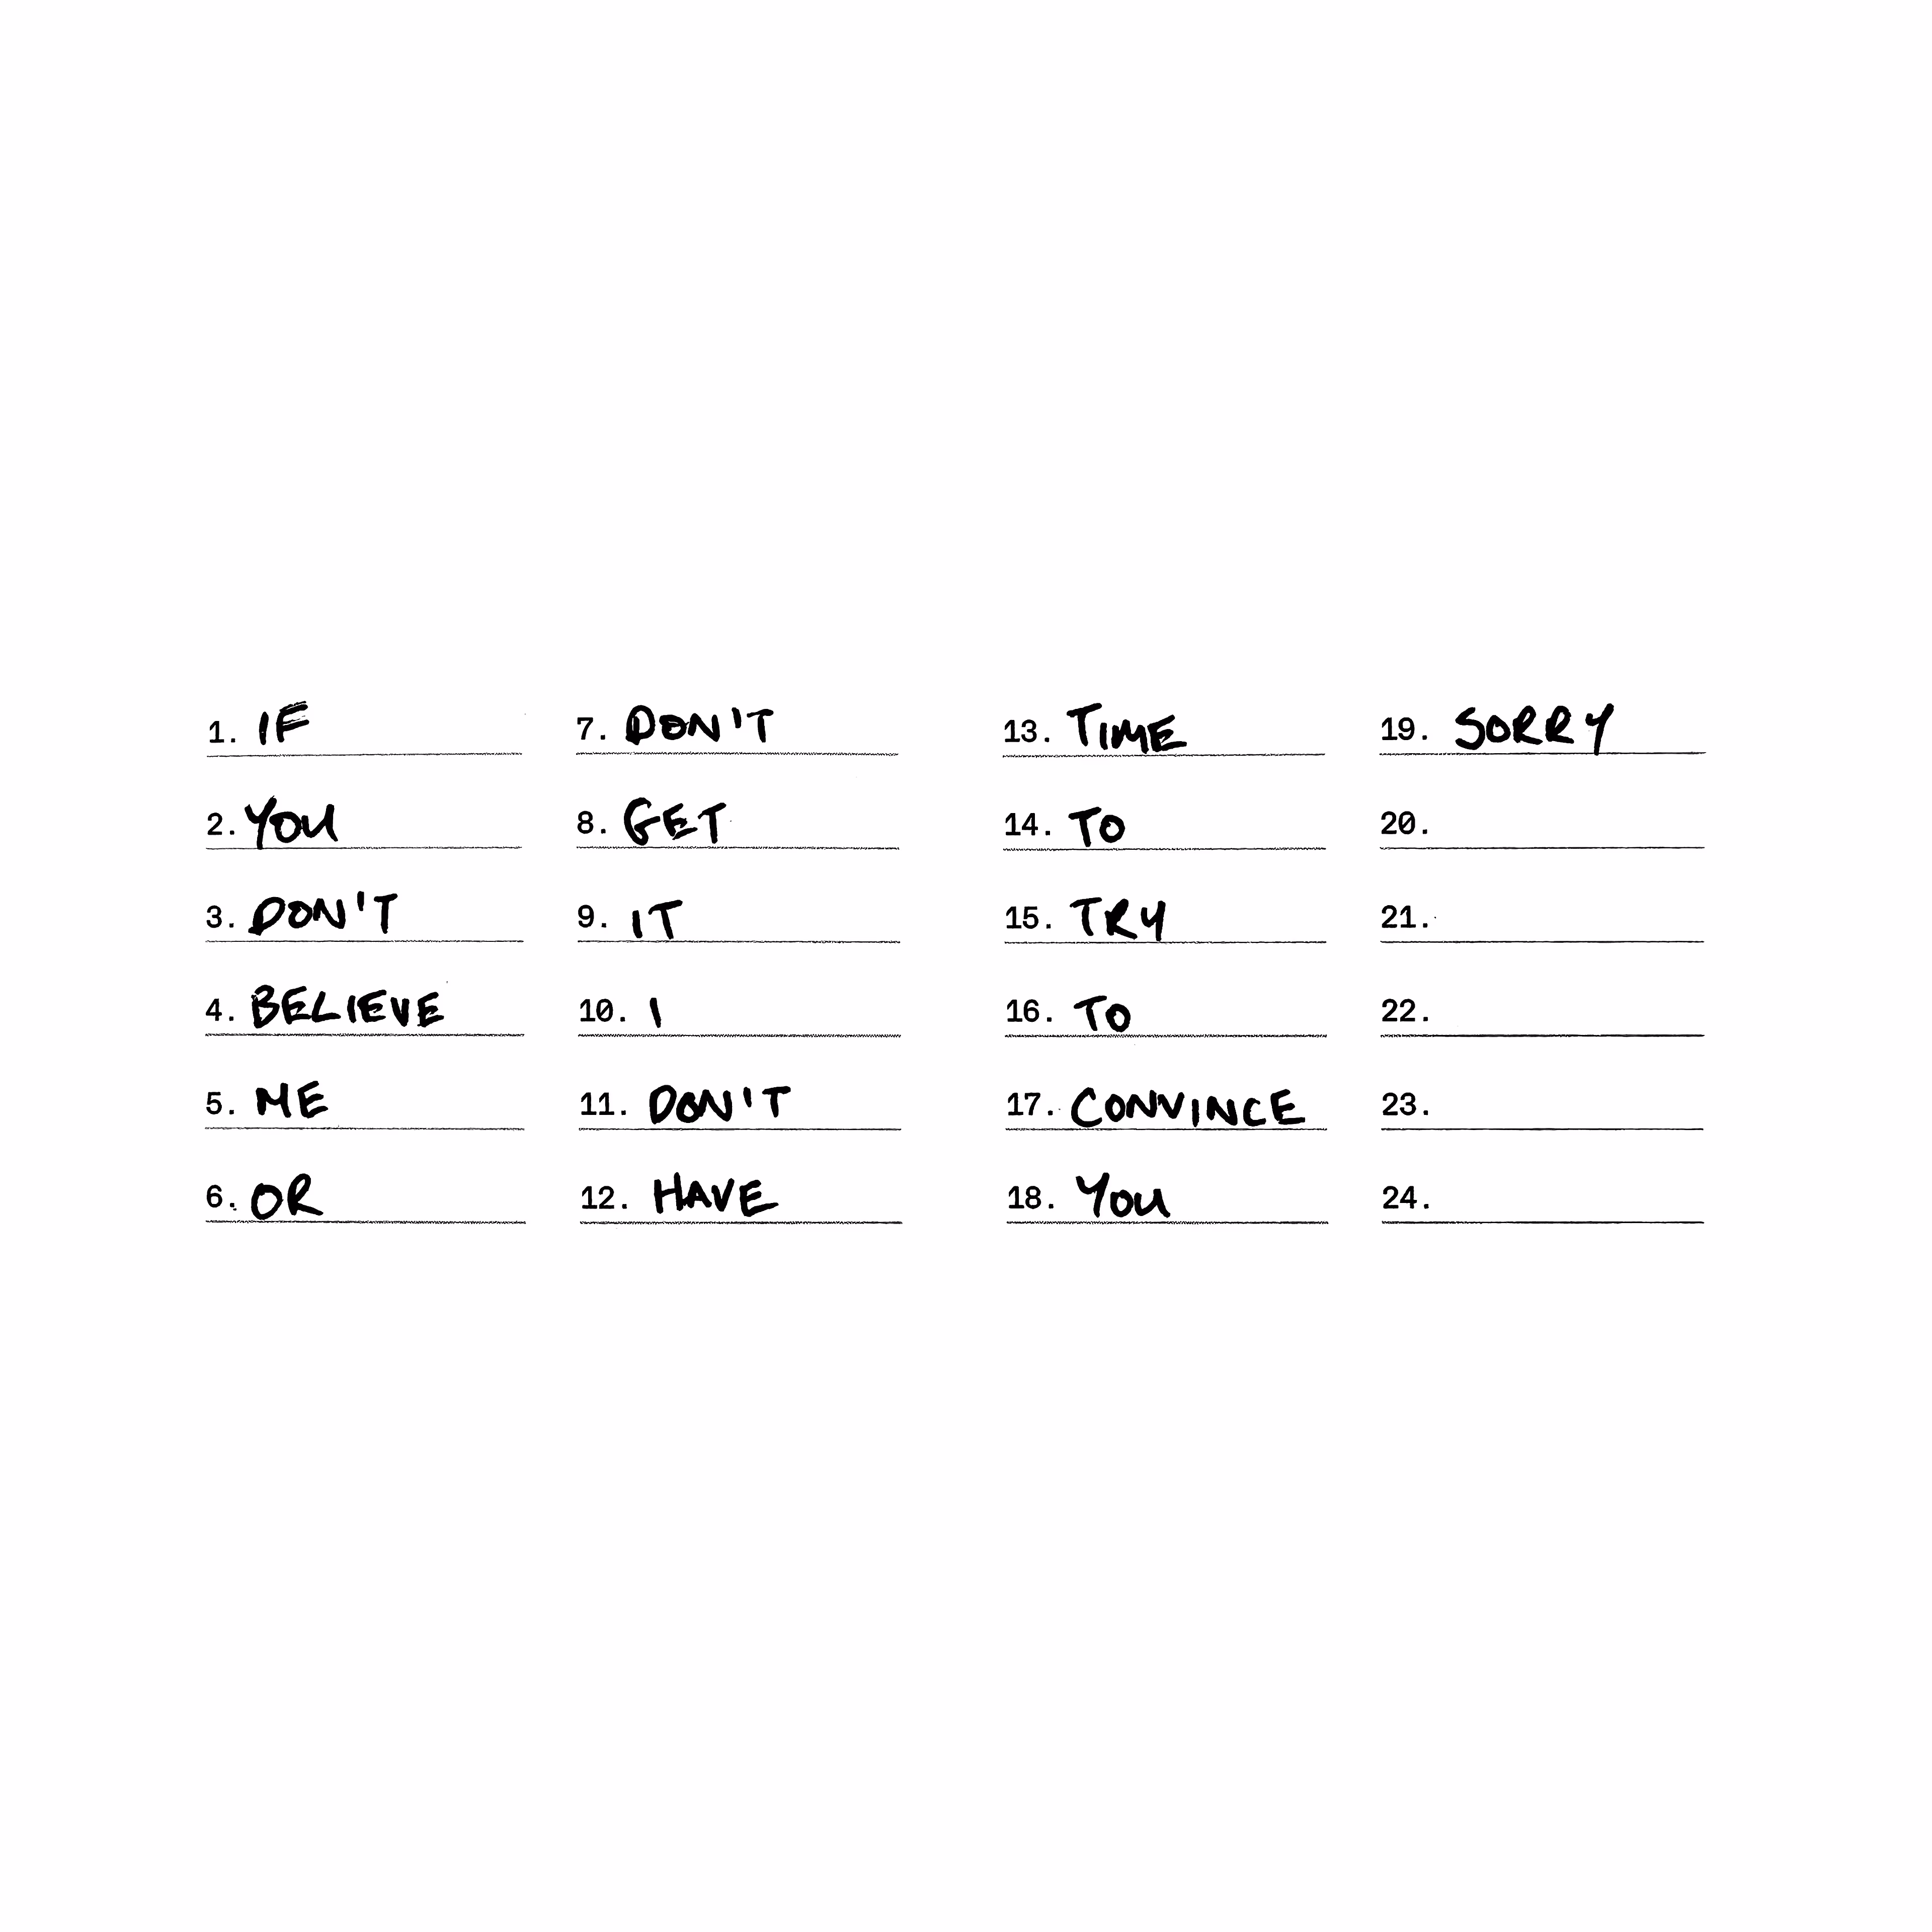 1. IF
2. YOU
3. DON'T
4. BELIEVE
5. ME
6. OR
7. DON'T
8. GET
9. IT
10. I
11. DON'T
12. HAVE
13. TIME
14. TO
15. TRY
16. TO
17. CONVINCE
18. YOU
19. SORRY
20.
21.
22.
23.
24.